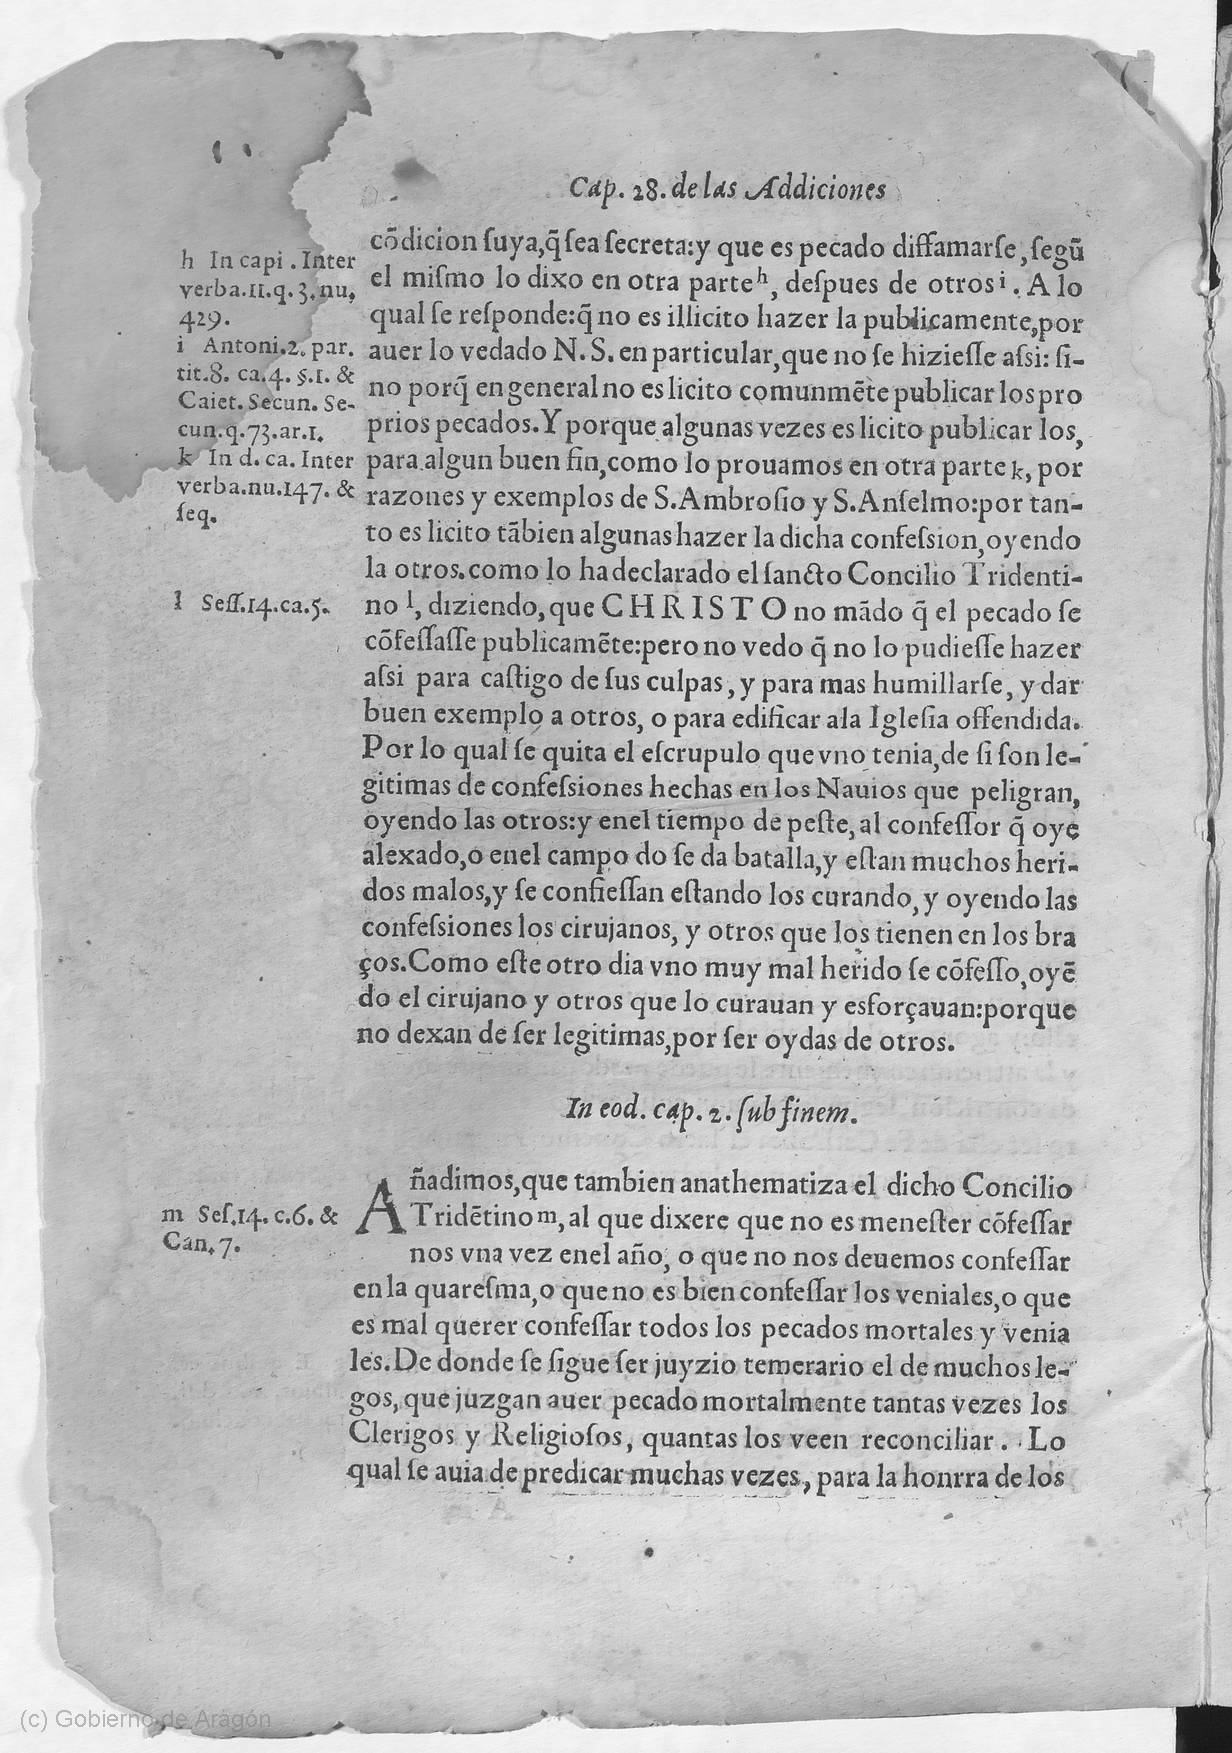 Cap. 28. de las Addiciones
cõdicion ſuya,q̃ ſea ſecreta:y que es pecado diffamarſe, ſegũ
el miſmo lo dixo en otra parte h, deſpues de otros i. A lo
qual ſe reſponde:q̃ no es illicito hazer la publicamente,por
auer lo vedado N. S. en particular,que no ſe hizieſſe aſsi: ſi-
no porq̃ en general no es licito comunmẽte publicar los pro
prios pecados.Y porque algunas vezes es licito publicar los,
para algun buen fin,como lo prouamos en otra parte k, por
razones y exemplos de S.Ambroſio y S.Anſelmo:por tan-
to es licito tãbien algunas hazer la dicha confeſsion,oyendo
la otros.como lo ha declarado el ſancto Concilio Tridenti-
no l, diziendo,que CHRISTO no mãdo q̃ el pecado ſe
cõfeſſaſſe publicamẽte:pero no vedo q̃ no lo pudieſſe hazer
aſsi para caſtigo de ſus culpas, y para mas humillarſe, y dar
buen exemplo a otros, o para edificar ala Igleſia offendida.
Por lo qual ſe quita el eſcrupulo que vno tenia,de ſi ſon le-
gitimas de confeſsiones hechas en los Nauios que peligran,
oyendo las otros:y enel tiempo de peſte, al confeſſor q̃ oye
alexado,o enel campo do ſe da batalla,y eſtan muchos heri-
dos malos,y ſe confieſſan eſtando los curando, y oyendo las
confeſsiones los cirujanos, y otros que los tienen en los bra
ços.Como eſte otro dia vno muy mal herido ſe cõfeſſo,oyẽ
do el cirujano y otros que lo curauan y esforçauan:porque
no dexan de ſer legitimas,por ſer oydas de otros.
h In capi . Inter
verba.11.q.3.nu,
429.
i Antoni.2. par.
tit.8. ca.4. §.1. &
Caiet. Secun. Se-
cun.q.73.ar.1.
k In d. ca. Inter
verba.nu.147. &
ſeq.
l Seſſ.14.ca.5.
In eod. cap. 2. ſub finem.
Añadimos,que tambien anathematiza el dicho Concilio
Tridẽtino m, al que dixere que no es meneſter cõfeſſar
nos vna vez enel año, o que no nos deuemos confeſſar
en la quareſma,o que no es bien confeſſar los veniales,o que
es mal querer confeſſar todos los pecados mortales y venia
les.De donde ſe ſigue ſer juyzio temerario el de muchos le-
gos, que juzgan auer pecado mortalmente tantas vezes los
Clerigos y Religioſos, quantas los veen reconciliar. Lo
qual ſe auia de predicar muchas vezes, para la honrra de los
m Seſ.14. c.6. &
Can.7.
(c) Gobierno de Aragón